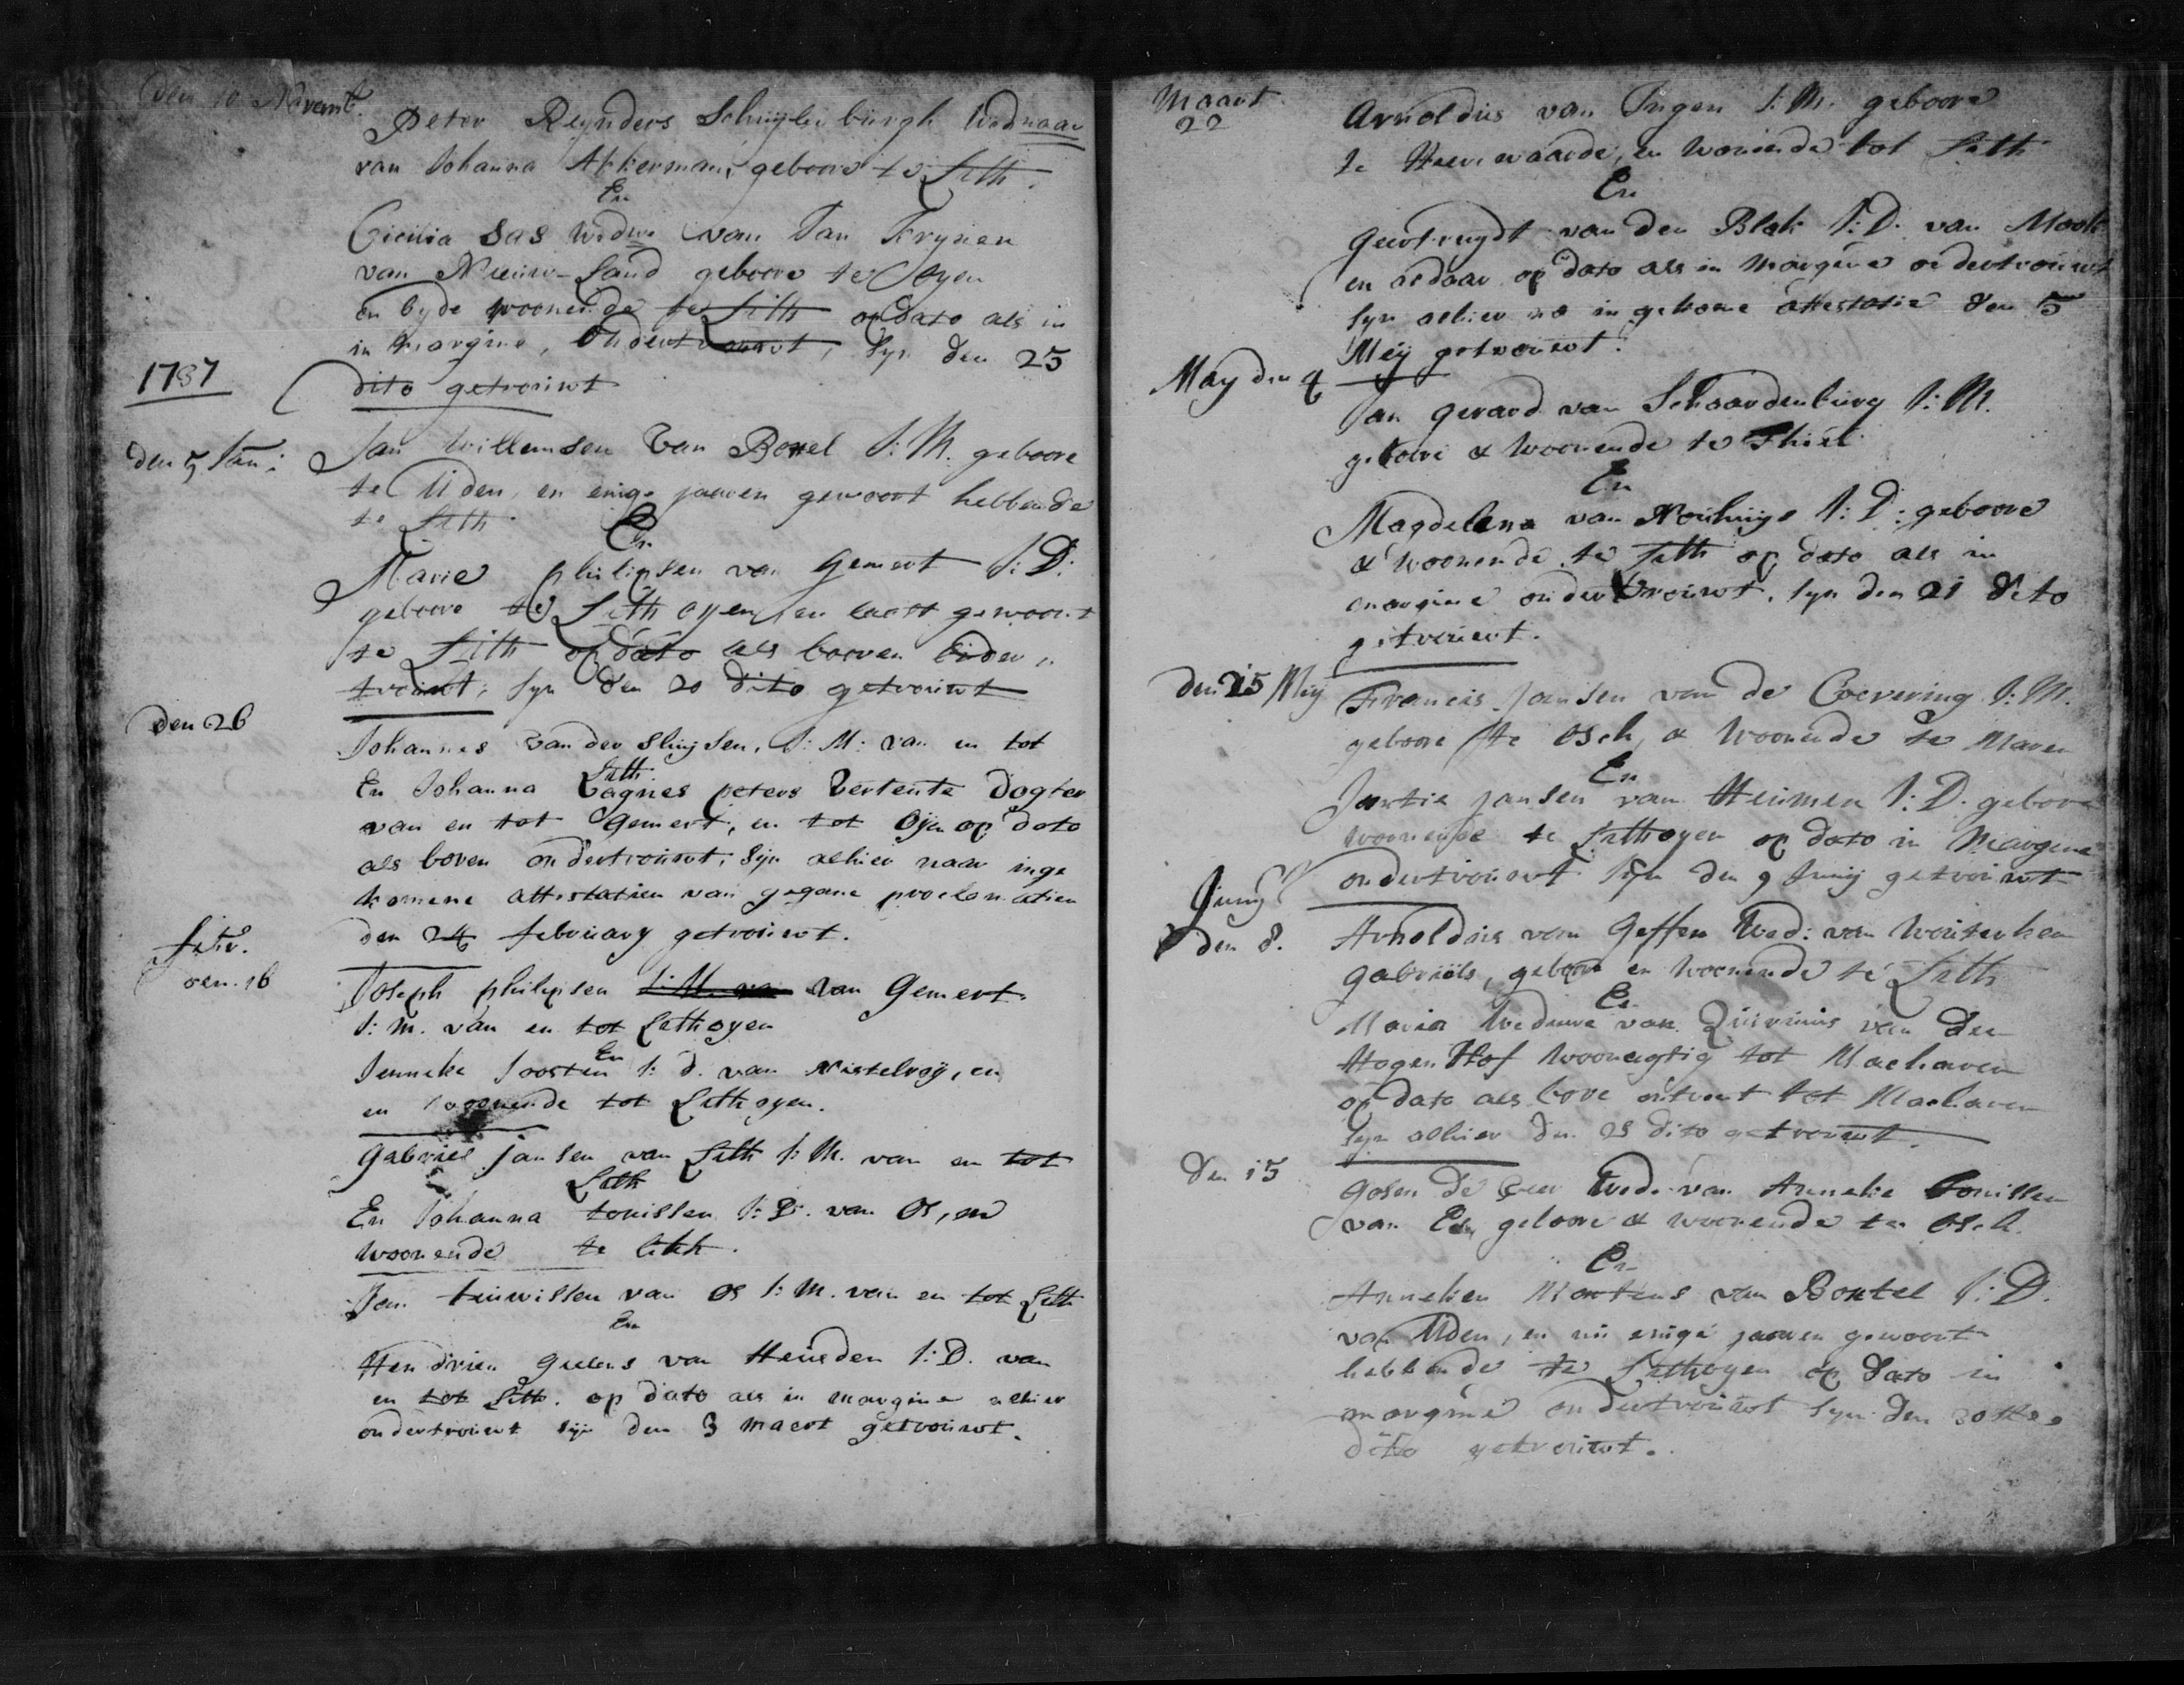 den 10 Novemb.
Peter Reynders Schuylenburgh Weduaar
van Johanna Akkermans, geboore te Lith.
En
Cicilia Sas Wedwe van Jan Krynen
van Nieuw-Land geboore te Oyen
en byde woonende te Lith op dato als in
in margine, Ondertrouwt, Syn den 25
dito getrouwt
1787
den 5 Jan:
Jan Willemsen Van Boxel J:M. geboore
te Uden, en enige jaaren gewoont hebbende
te Lith
En
Marie philipsen van Gemert J:D:
geboore te Lith oyen, en laast gewoont
te Lith op dato als booven onder
trouwt, syn den 20 dito getrouwt
den 26
Johannes van der Sluijsen, J:M: van en tot
Lith
En Johanna Eagnes peters Vertente Dogter
van en tot Gemert, en tot Oijen op dato
als boven ondertrouwt, Sijn alhier naar inge
komene attestatien van gegane proclamatien
den 24 february getrouwt.
Febr.
den. 16
Joseph philipsen J:M. van van Gemert
J:m. van en tot Lithoyen
En
Jenneke Joosten J:d. van Nistelroy, en
en woonende tot Lithoyen.
Gabriel Jansen van Lith J:M. van en tot
Lith
En Johanna tonissen J:D. van Os, en
woonende te Lith.
Jan teuwissen van Os J:M. van en tot Lith
En
Hendrien Geelens van Heusden J:D. van
en tot Lith. op dato als in margine alhier
ondertrouwt sijn den 3 maert getrouwt.
Maart
22
Arnoldus van Ingen J:M. geboore
te Heerewaarde, en Wonende tot Lith
En
Geertruydt van den Blok J:D. van Mook
en aldaar op dato als in margine ondertrouwt
Syn alhier na ingekome attestatie den 5
Meij getrouwt.
May den 4
Jan Gerard van Schaardenburg J:M.
geboore & Woonende te Thiel
En
Magdelena van Nouhuys J:D: geboore
& woonende te Lith op dato als in
margine ondertrouwt, syn den 21 dito
getrouwt.
Den 25 Meij
Francis Jansen van de Coevering J:M.
geboore te Osch, & Woonende te Maren
En
Jantie Jansen van Heumen J:D. geboore
woonende te Lithoyen op dato in Margine
ondertrouwt syn den 9 Junij getrouwt
Junij
den 8.
Arnoldus van Geffen Wed: van Wouterken
Gabriëls, geboore en Woonende te Lith
En
Maria Weduwe van Quirinus van den
Hogen Hof Woonagtig tot Macharen
op dato als bove ontrout tot Macharen
Syn alhier den 25 dito getrouwt.
Den 15
Gosen de Wed. van Anneke tonissen
van geboore & woonende te Osch.
En
Anneken Martens van Boxtel J:D.
van Uden, en nu enige jaaren gewoont
hebbende te Lithoyen op dato in
margine ondertrouwt Syn den 30
dito getrouwt.